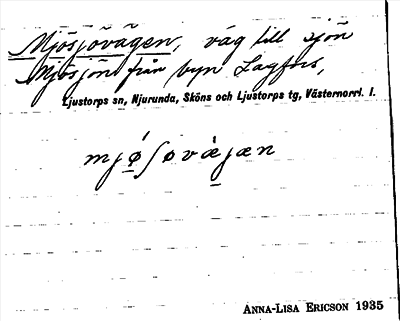 Mjösjövägen, väg till sjön
Mjösjön från byn Lagfors,
Ljustorps sn, Njurunda, Sköns och Ljustorps tg, Västernorrl. l.
mjǿʃøvæ̀jæn
ANNA-LISA ERICSON 1935